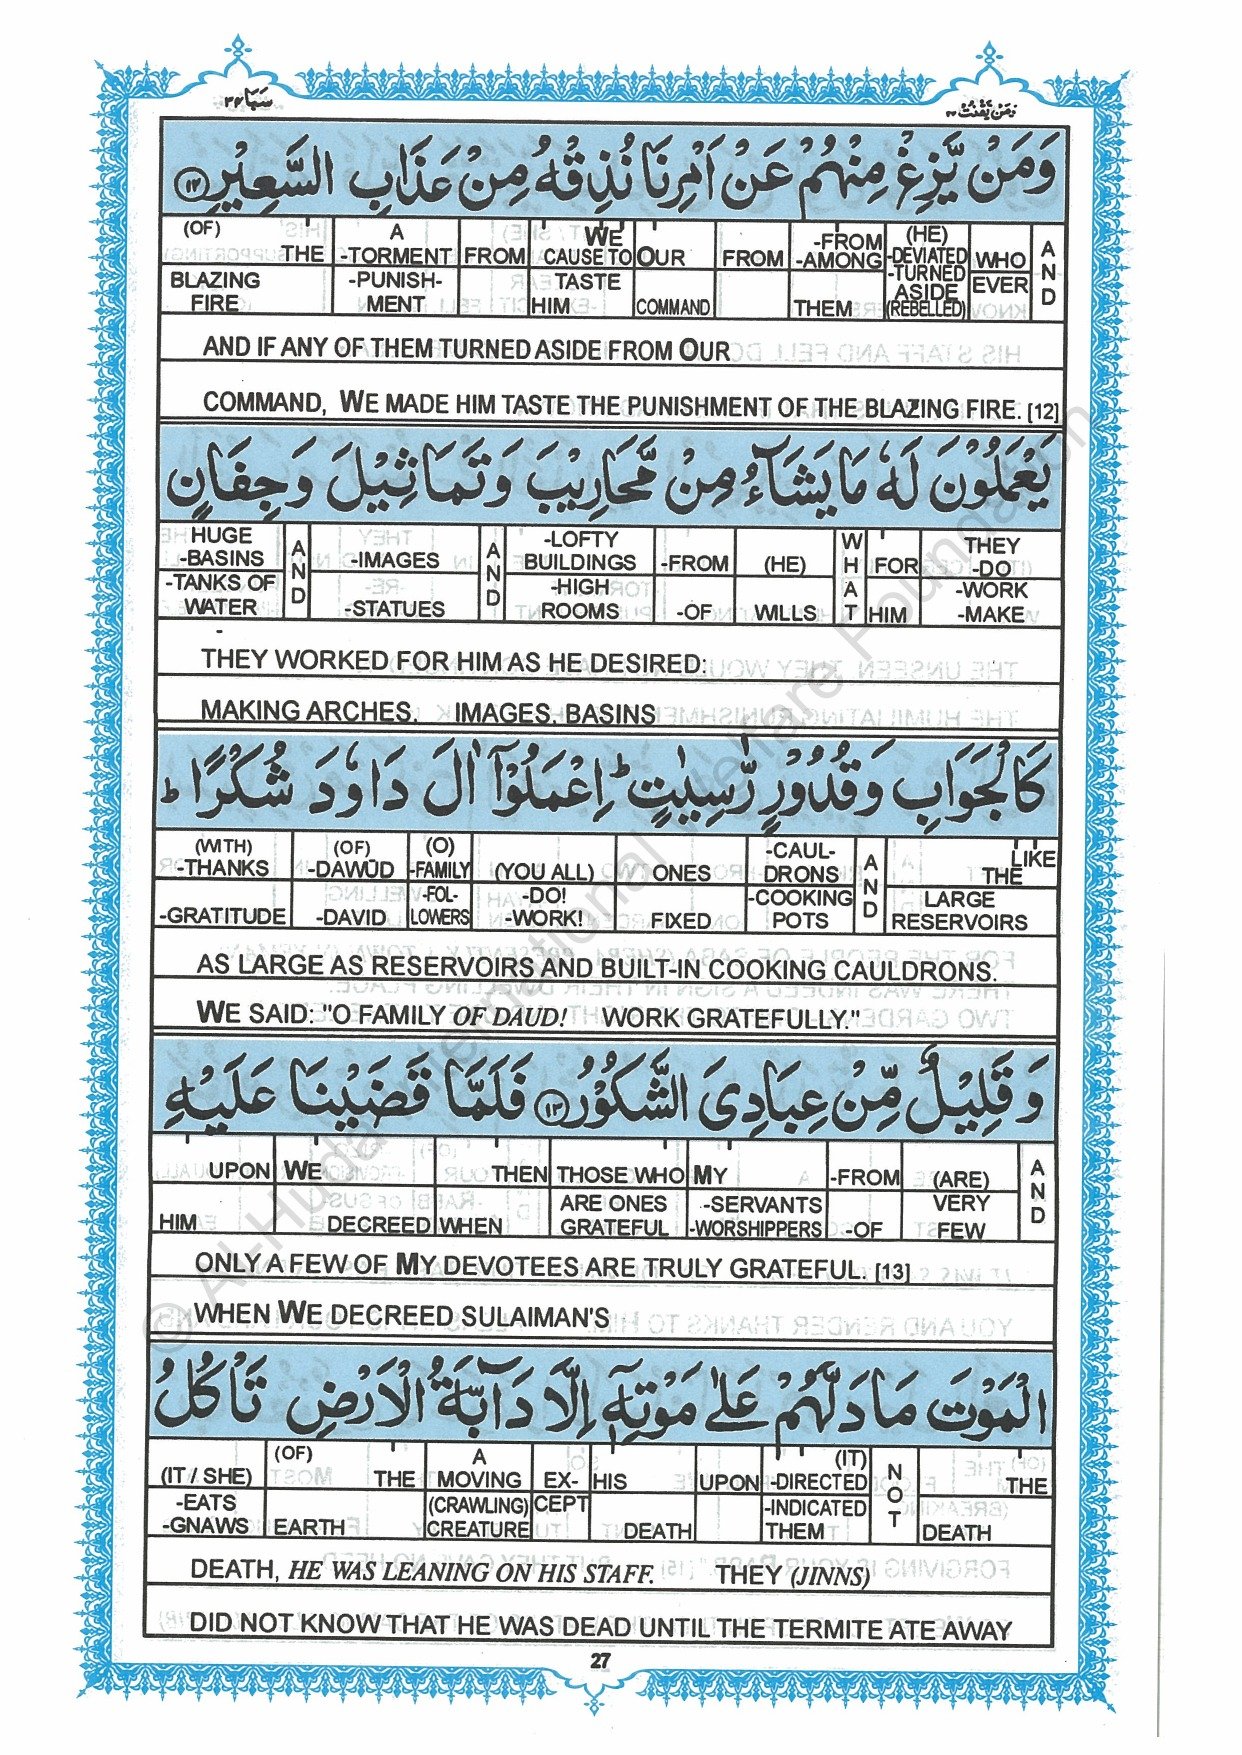 سَبَا ٣٤
وَمَنْ يَّقْنُتْ ٢٢
وَمَنْ يَّزِغْ مِنْهُمْ عَنْ اَمْرِنَا نُذِقْهُ مِنْ عَذَابِ السَّعِيْرِ ١٢
AND
WHO EVER
(HE) -DEVIATED -TURNED ASIDE (REBELLED)
-FROM -AMONG THEM
FROM
OUR COMMAND
WE CAUSE TO TASTE HIM
FROM
A -TORMENT -PUNISH-MENT
(OF) THE BLAZING FIRE
AND IF ANY OF THEM TURNED ASIDE FROM OUR
COMMAND, WE MADE HIM TASTE THE PUNISHMENT OF THE BLAZING FIRE. [12]
يَعْمَلُوْنَ لَهٗ مَا يَشَآءُ مِنْ مَّحَارِيْبَ وَتَمَاثِيْلَ وَجِفَانٍ
THEY -DO -WORK -MAKE
FOR HIM
WHAT
(HE) WILLS
-FROM -OF
-LOFTY BUILDINGS -HIGH ROOMS
AND
-IMAGES -STATUES
AND
HUGE -BASINS -TANKS OF WATER
THEY WORKED FOR HIM AS HE DESIRED:
MAKING ARCHES. IMAGES. BASINS
كَالْجَوَابِ وَقُدُوْرٍ رّٰسِيٰتٍ ط اِعْمَلُوْٓا اٰلَ دَاوٗدَ شُكْرًا ط
LIKE THE LARGE RESERVOIRS
AND
-CAUL-DRONS -COOKING POTS
ONES FIXED
(YOU ALL) -DO! -WORK!
(O) -FAMILY -FOL-LOWERS
(OF) -DAWŪD -DAVID
(WITH) -THANKS -GRATITUDE
AS LARGE AS RESERVOIRS AND BUILT-IN COOKING CAULDRONS.
WE SAID: "O FAMILY OF DAUD! WORK GRATEFULLY."
وَقَلِيْلٌ مِّنْ عِبَادِيَ الشَّكُوْرُ ١٣ فَلَمَّا قَضَيْنَا عَلَيْهِ
AND
(ARE) VERY FEW
-FROM -OF
MY -SERVANTS -WORSHIPPERS
THOSE WHO ARE ONES GRATEFUL
THEN WHEN
WE DECREED
UPON HIM
ONLY A FEW OF MY DEVOTEES ARE TRULY GRATEFUL. [13]
WHEN WE DECREED SULAIMAN'S
الْمَوْتَ مَا دَلَّهُمْ عَلٰى مَوْتِهٖٓ اِلَّا دَآبَّةُ الْاَرْضِ تَاْكُلُ
THE DEATH
NOT
(IT) -DIRECTED -INDICATED THEM
UPON
HIS DEATH
EX-CEPT
A MOVING (CRAWLING) CREATURE
(OF) THE EARTH
(IT / SHE) -EATS -GNAWS
DEATH, HE WAS LEANING ON HIS STAFF. THEY (JINNS)
DID NOT KNOW THAT HE WAS DEAD UNTIL THE TERMITE ATE AWAY
27
© Al-Huda International Welfare Foundation